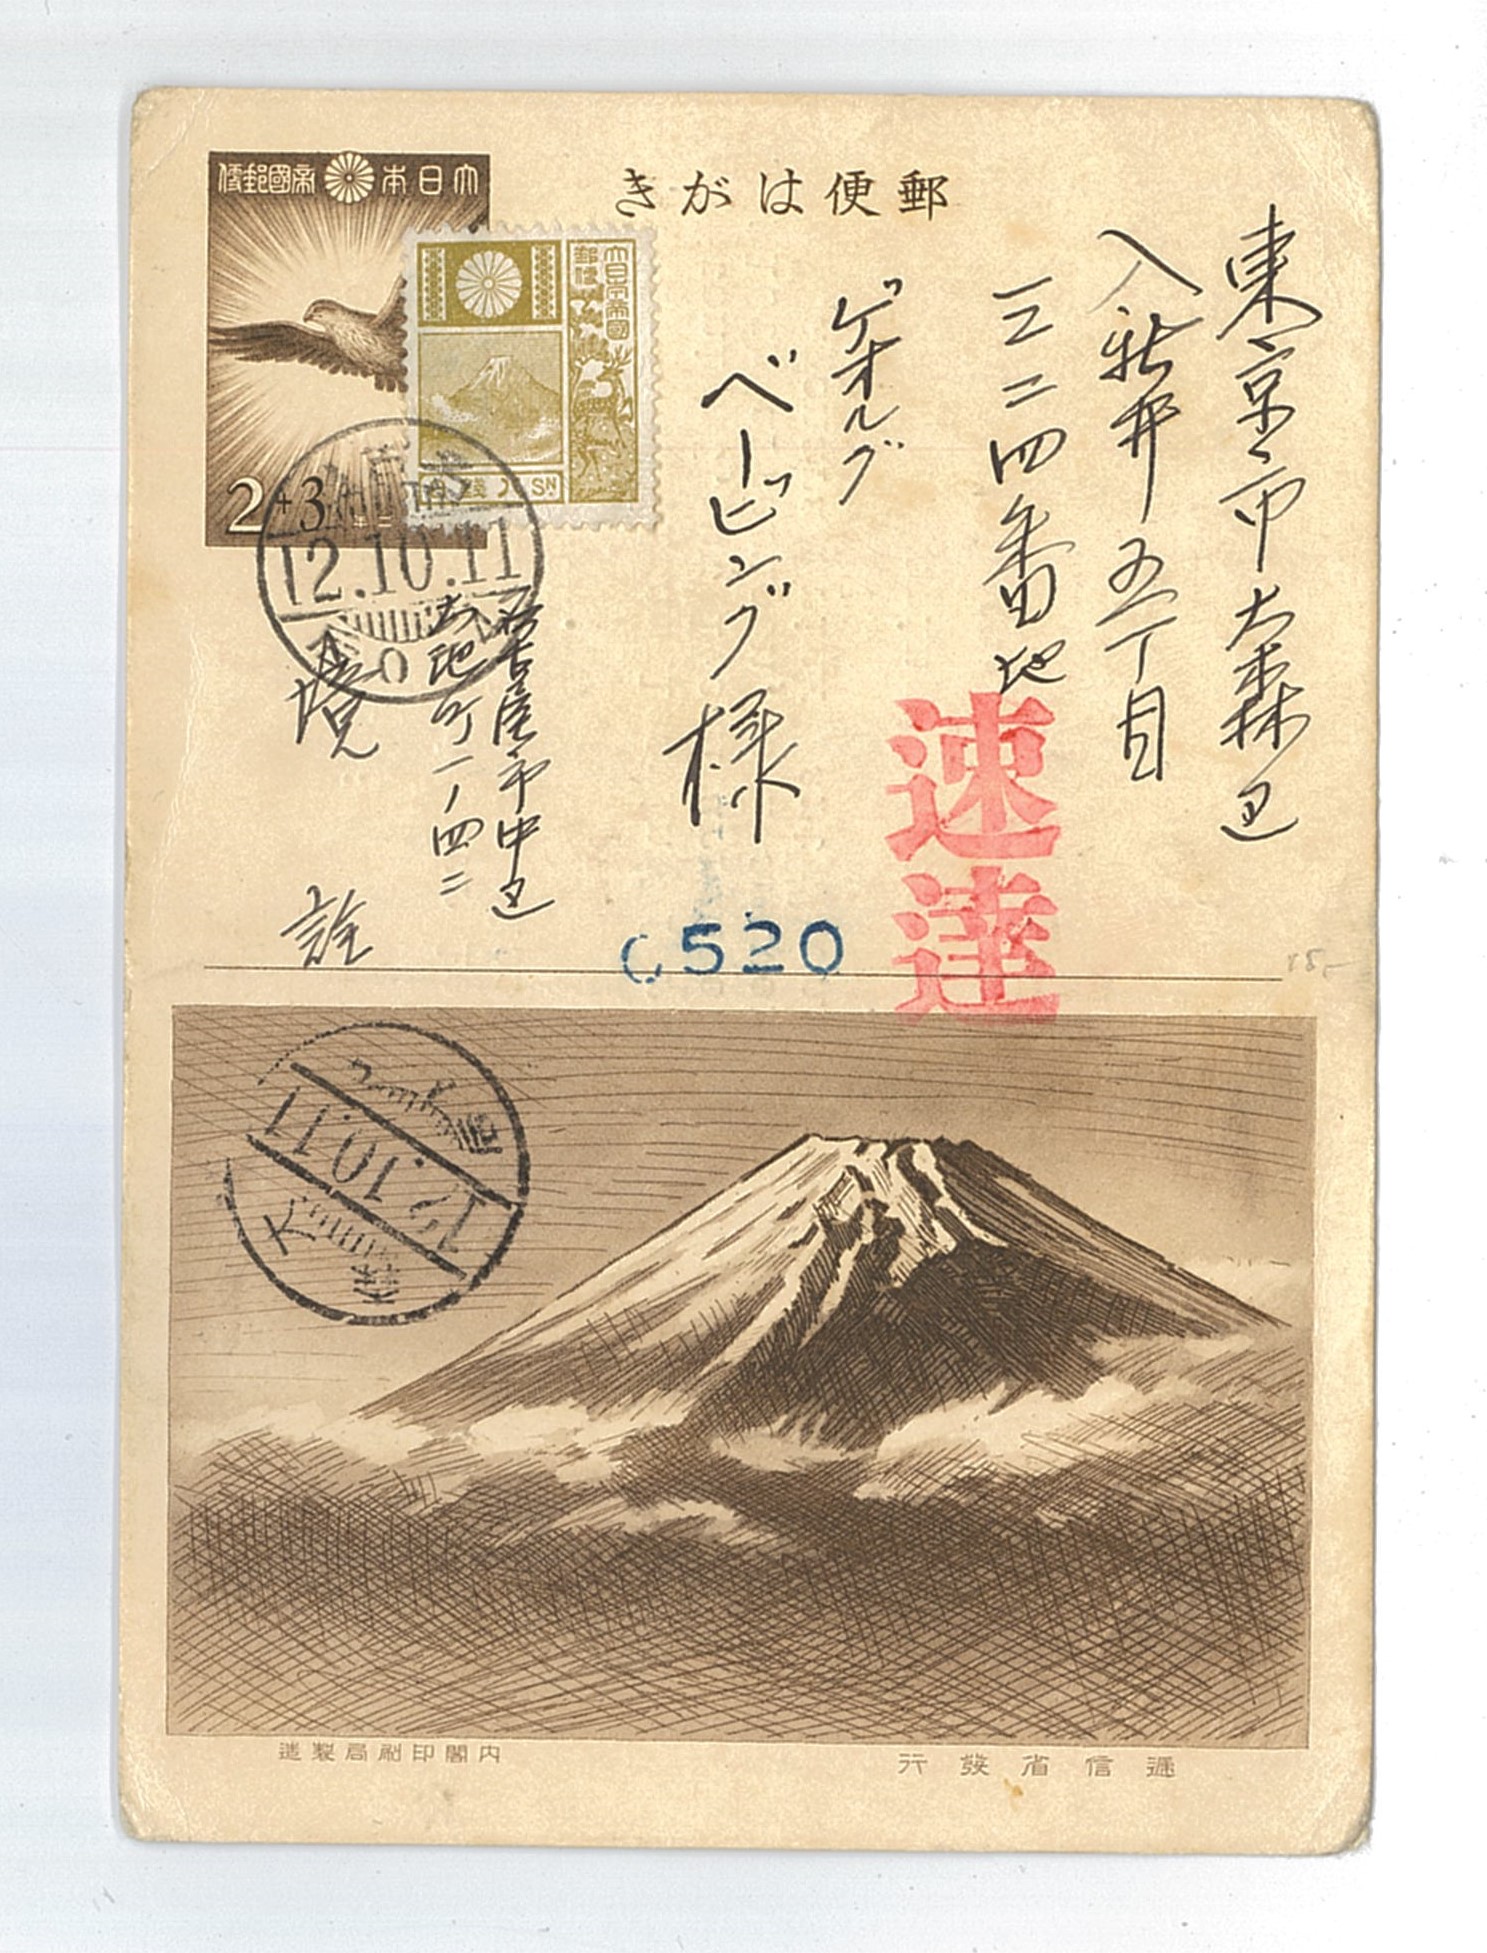 郵便はがき
大日本帝國郵便
2+3
大日本帝國
郵便
SN
東京市大森区
入新井五丁目
一三二四番地
ゲオルグ
ベーッヒング
様
速達
名古屋市中区
大池町一ノ四二
境
詮
12.10.11
0520
12.10.11
大森
遞信省發行
内閣印刷局製造